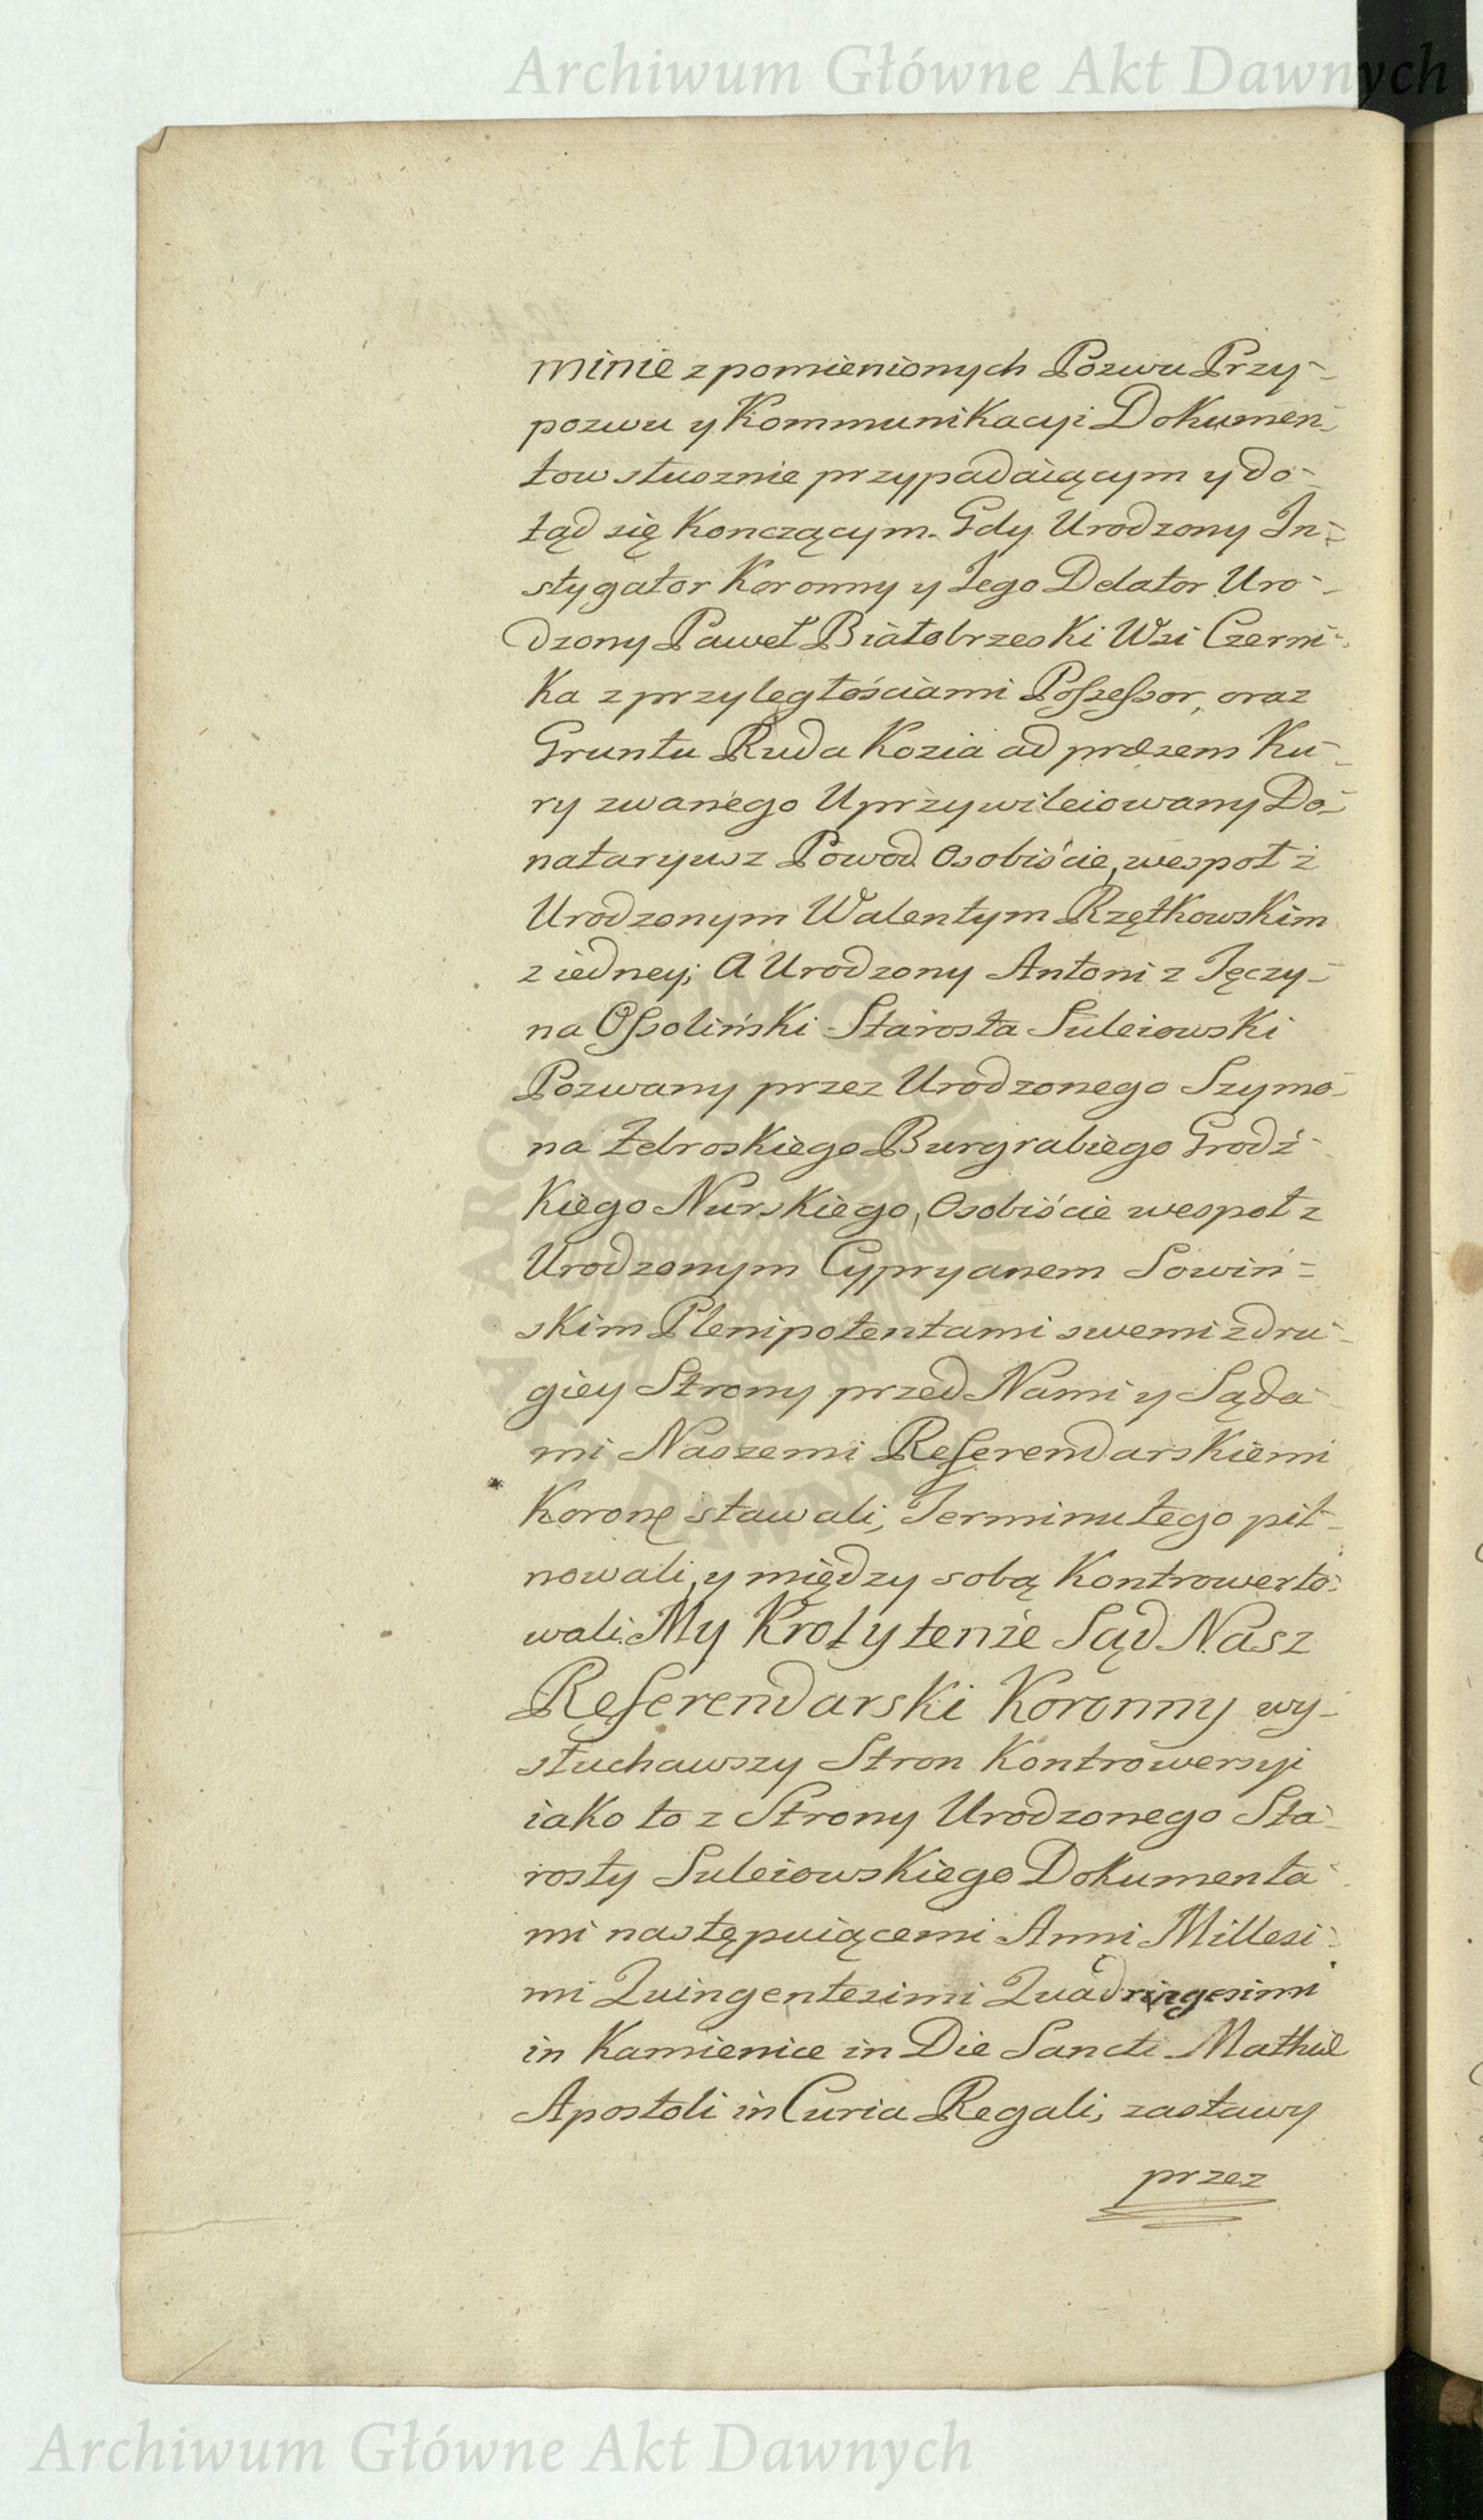 Archiwum Główne Akt Dawnych
minie z pomienionych Pozwu Przy-
pozwu y Kommunikacyi Dokumen-
tow słusznie przypadaiącym y do-
tąd się Konczącym. Gdy Urodzony In-
stygator Koronny y Jego Delator Uro-
dzony Paweł Białobrzeski Wsi Czerni-
ka z przyległościami Possessor, oraz
Gruntu Ruda Kozia ad præsens Ku-
ry zwanego Uprzywileiowany Do-
nataryusz Powod Osobiście, wespoł z
Urodzonym Walentym Rzętkowskim
z iedney; A Urodzony Antoni z Tęczy-
na Ossoliński Starosta Suleiowski
Pozwany przez Urodzonego Szymo-
na Zebroskiego Burgrabiego Grodz-
kiego Nurskiego, Osobiście wespoł z
Urodzonym Cypryanem Sowiń=
skim Plenipotentami swemi z dru-
giey Strony przed Nami y Sąda-
mi Naszemi Referendarskiemi
Koronę stawali, Terminu tego pil-
nowali, y między sobą Kontrowerto-
wali. My Krol y tenże Sąd Nasz
Referendarski Koronny wy-
słuchawszy Stron Kontrowersyi
iako to z Strony Urodzonego Sta-
rosty Suleiowskiego Dokumenta-
mi następuiącemi Anni Millesi-
mi Quingentesimi Quadringesimi
in Kamienice in Die Sancti Mathiæ
Apostoli in Curia Regali, zastawy
przez
Archiwum Główne Akt Dawnych